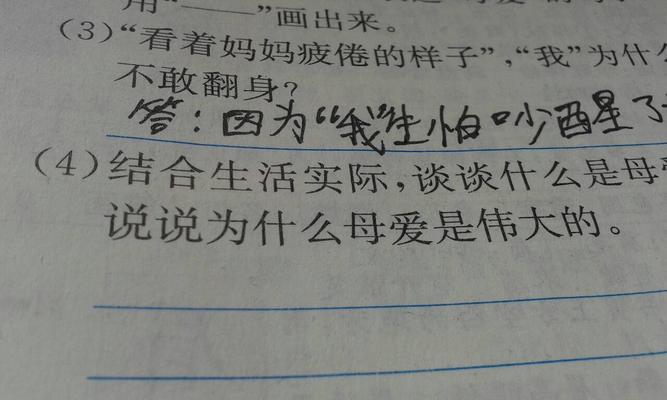 用“——”画出来。
(3)“看着妈妈疲倦的样子”,“我”为什么
不敢翻身?
答:因为“我”生怕吵醒了
(4)结合生活实际,谈谈什么是母
说说为什么母爱是伟大的。